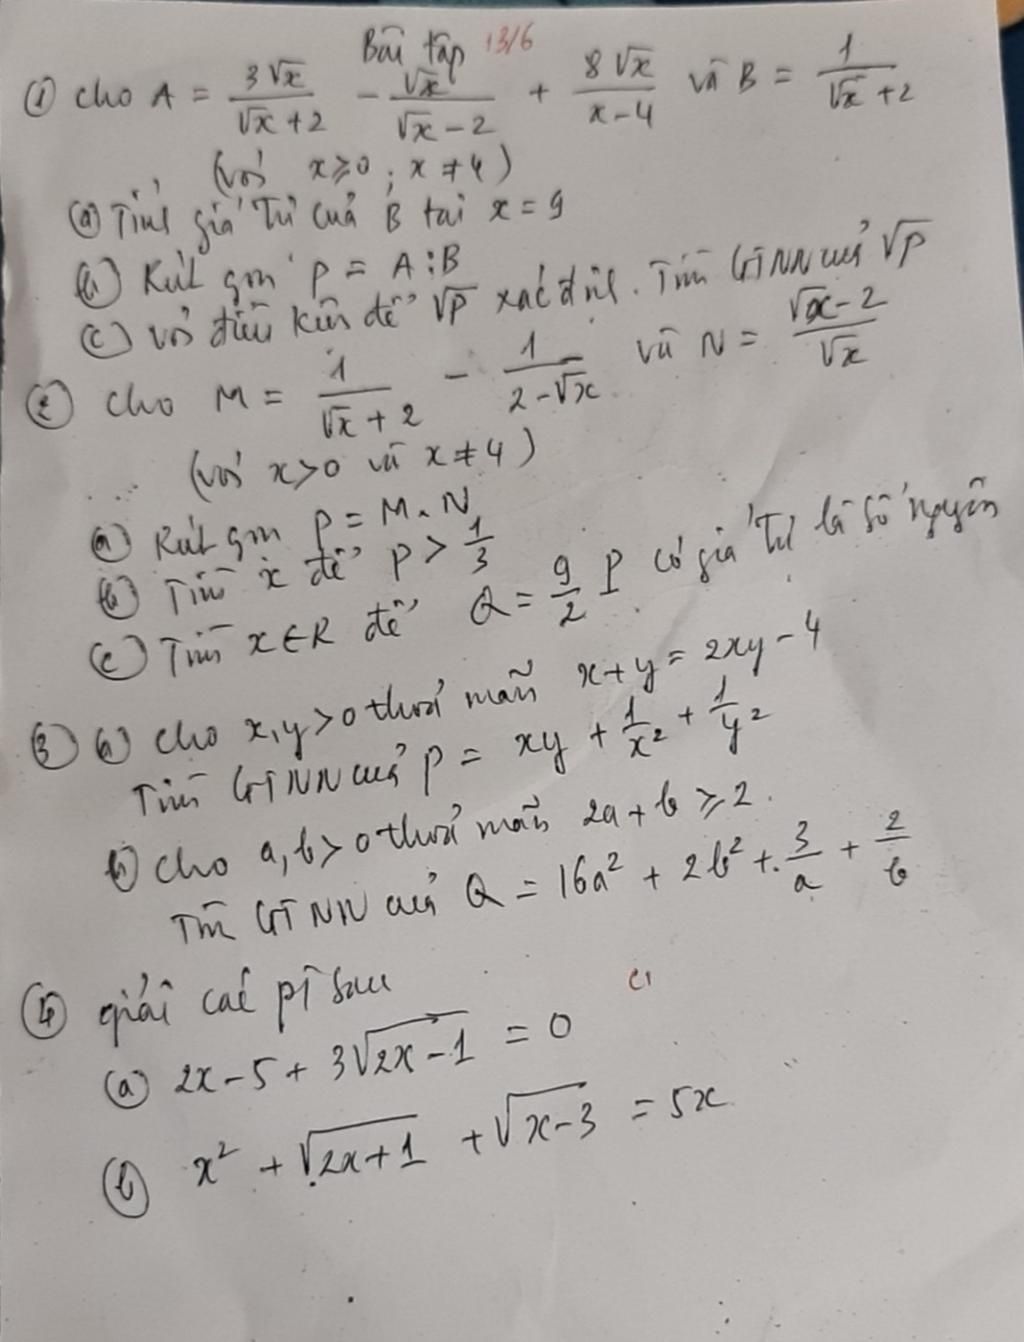 Bài tập 13/6
① Cho A = 3√x/(√x+2) - √x/(√x-2) + 8√x/(x-4) và B = 1/(√x+2)
(với x≥0; x≠4)
ⓐ Tính giá trị của B tại x=9
ⓑ Rút gọn P = A:B
ⓒ Với điều kiện để √P xác định. Tìm GTNN của √P
② Cho M = 1/(√x+2) - 1/(2-√x) và N = (√x-2)/√x
(với x>0 và x≠4)
ⓐ Rút gọn P = M.N
ⓑ Tìm x để P > 1/3
ⓒ Tìm x∈R để Q = 9/2 P có giá trị là số nguyên
③ ⓐ Cho x,y>0 thoả mãn x+y = 2xy-4
Tìm GTNN của P = xy + 1/x² + 1/y²
ⓑ Cho a,b>0 thoả mãn 2a+b ≥ 2.
Tìm GTNN của Q = 16a² + 2b² + 3/a + 2/b
④ giải các pt sau
ⓐ 2x-5+3√(2x-1) = 0
ⓑ x² + √(2x+1) + √(x-3) = 5x